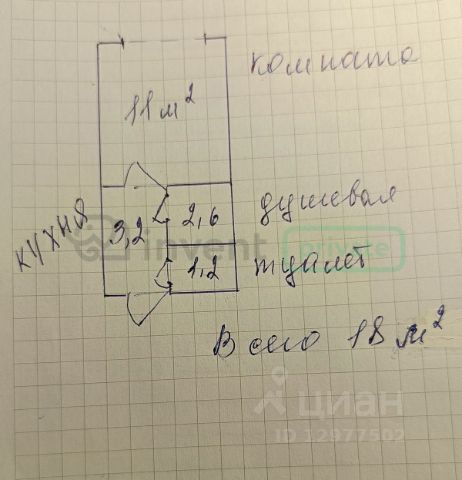 комната
11 м²
кухня
3,2
2,6
душевая
invent
private
1,2
туалет
Всего 18 м²
циан
ID 12977502